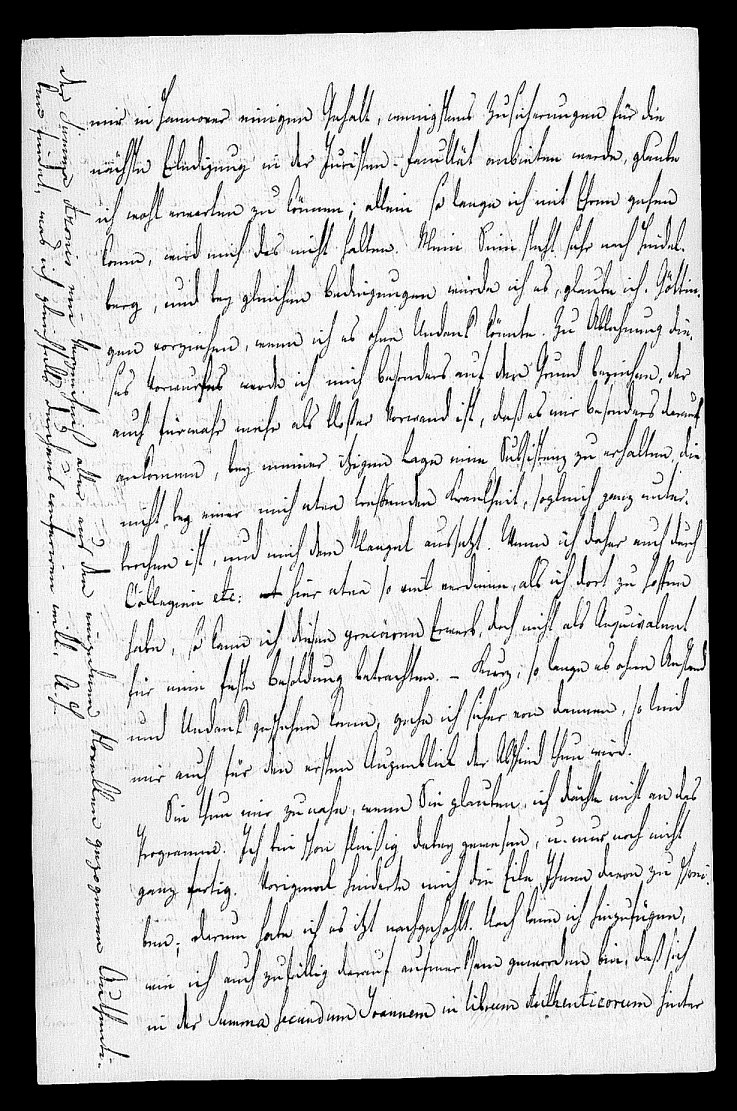 mir in Hannover einigen Gehalt, wenigstens Zusicherungen für die
nächste Erledigung in der Juristen-Facultät anbieten werde, glaube
ich wohl erwarten zu können; allein so lange ich mit Ehren gehen
kann, wird mich das nicht halten. Mein Sinn steht sehr nach Heidel-
berg, und bey gleichen Bedingungen würde ich es, glaube ich, Göttin-
gen vorziehen, wenn ich es ohne Undank könnte. Zu Ablehnung die-
ses Vorwurfes werde ich mich besonders auf den Grund beziehen, der
auch fürwahr mehr als bloßer Vorwand ist, daß es mir besonders darauf
ankomme, bey meiner itzigen Lage eine Subsistenz zu erhalten die
nicht bey einer mich etwa treffenden Krankheit, sogleich ganz unter-
brochen ist, und mich dem Mangel aussetzt. Wenn ich daher auch durch
Collegien etc: hier etwa so viel verdiene, als ich dort zu hoffen
habe, so kann ich diesen precairen Erwerb, doch nicht als Aequivalent
für eine feste Besoldung betrachten. – Kurz, so lange es ohne Anstand
und Undank geschehen kann, gehe ich sicher von dannen, so leid
mir auch für den ersten Augenblick der Abschied thun wird.
Sie thun mir zu nahe, wenn Sie glauben, ich dächte nicht an das
Programm. Ich bin schon fleißig dabey gewesen, u. nur noch nicht
ganz fertig. Vorigmal hinderte mich die Eile Ihnen davon zu schrei-
ben; darum habe ich es itzt nachgehohlt. Noch kann ich hinzufügen,
wie ich auch zufällig darauf aufmerksam geworden bin, daß sich
in der Summa secundum Joannem in librum Authenticorum hinter
der Summa ein Verzeichniß aller aus den einzelnen Novellen gezogenen Authenti-
ken findet, was ich gleichfalls conferiren will.